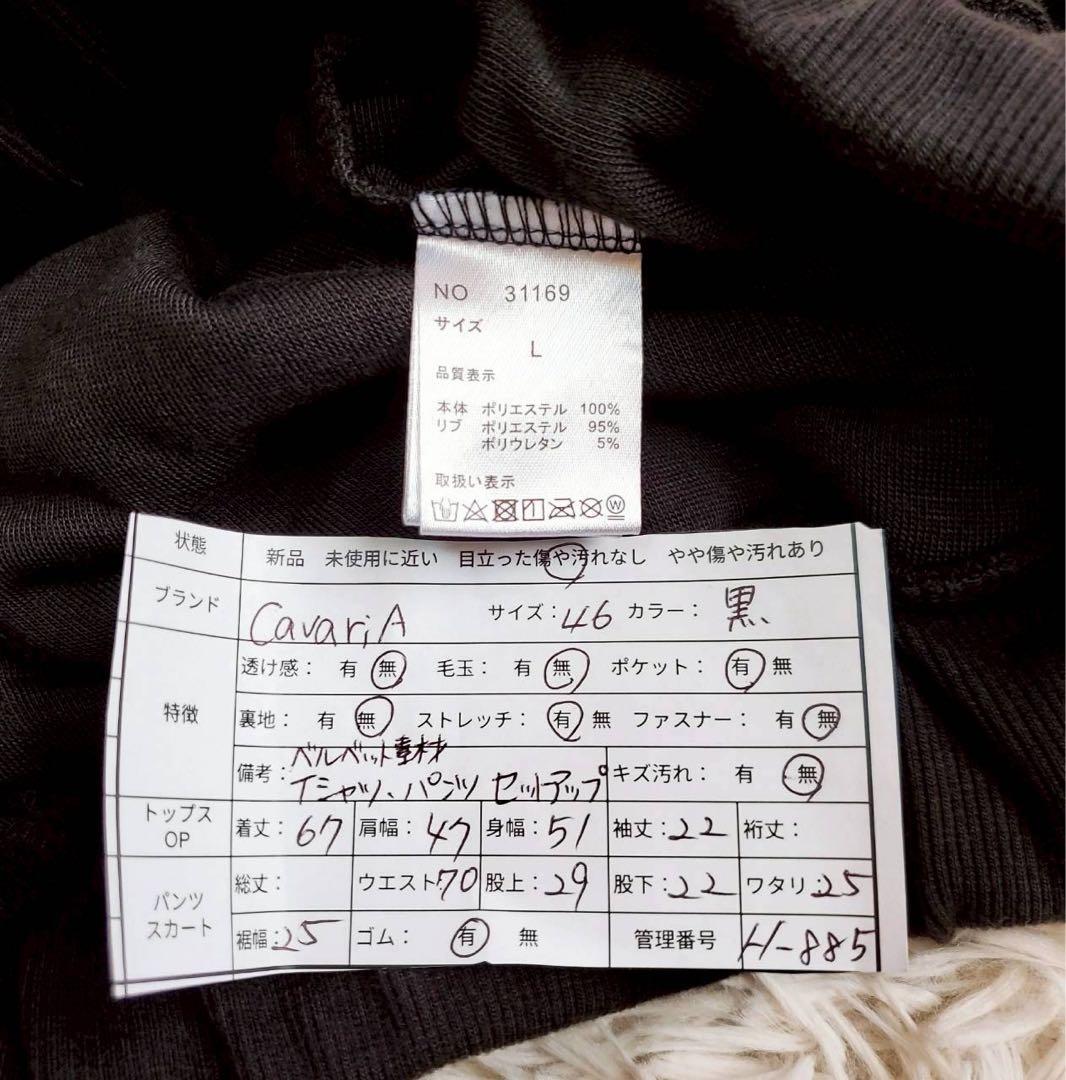 NO 31169
サイズ
L
品質表示
本体 ポリエステル 100%
リブ ポリエステル 95%
ポリウレタン 5%
取扱い表示
状態 新品 未使用に近い 目立った傷や汚れなし やや傷や汚れあり
ブランド CavariA サイズ：46 カラー：黒
特徴
透け感： 有 無 毛玉： 有 無 ポケット： 有 無
裏地： 有 無 ストレッチ： 有 無 ファスナー： 有 無
備考：ベルベット素材
Tシャツ、パンツ セットアップ キズ汚れ： 有 無
トップス OP 着丈：67 肩幅：47 身幅：51 袖丈：22 裄丈：
パンツ スカート 総丈： ウエスト：70 股上：29 股下：22 ワタリ：25
裾幅：25 ゴム： 有 無 管理番号 H-885